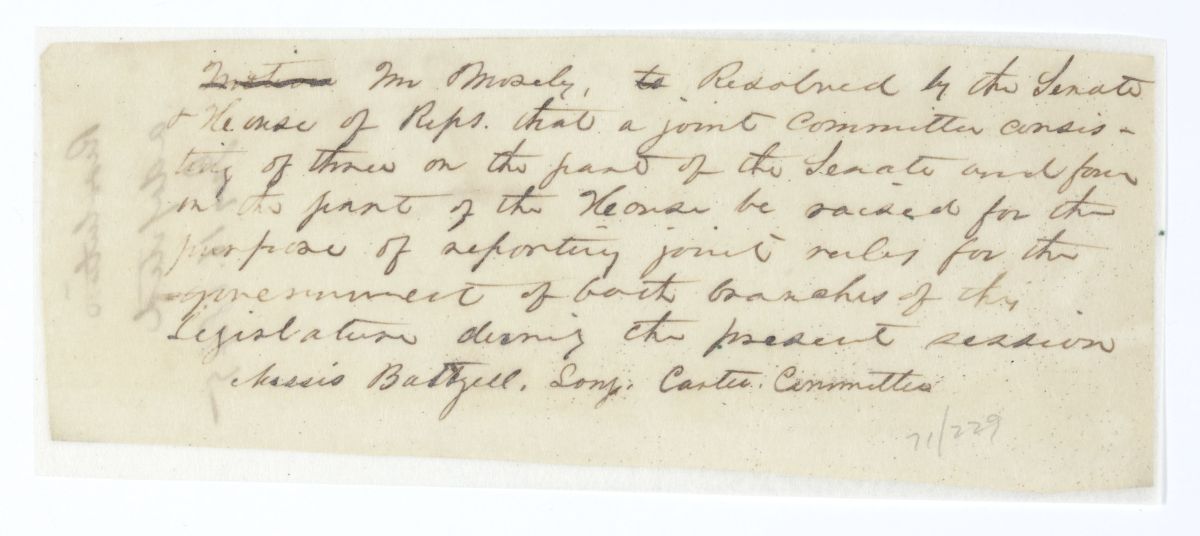 Motion Mr Mosely, to Resolved by the Senate
& House of Reps. that a joint Committee consis-
ting of three on the part of the Senate and four
on the part of the House be raised for the
purpose of reporting joint rules for the
government of both branches of this
Legislature during the present session
Messrs Baltzell, Long. Carter. Committee
71/229